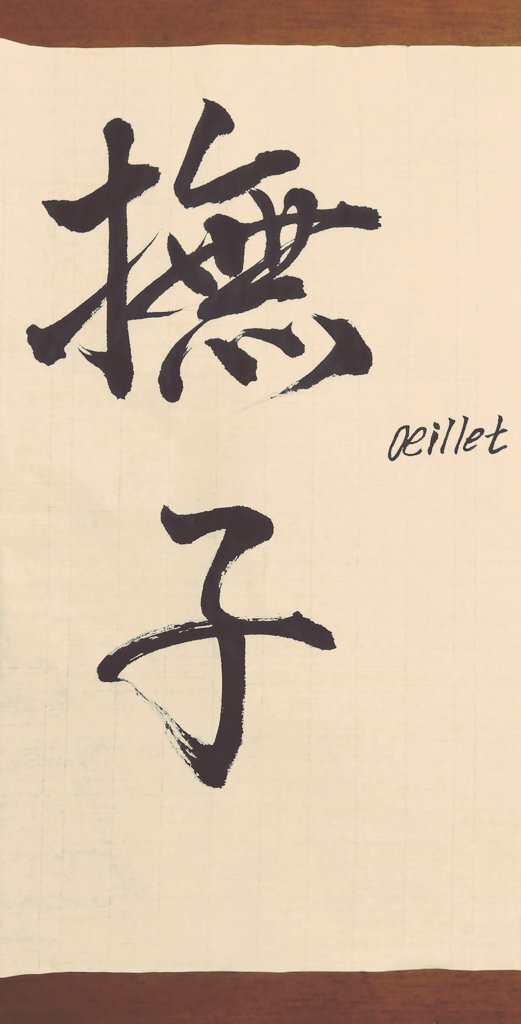 撫子
œillet